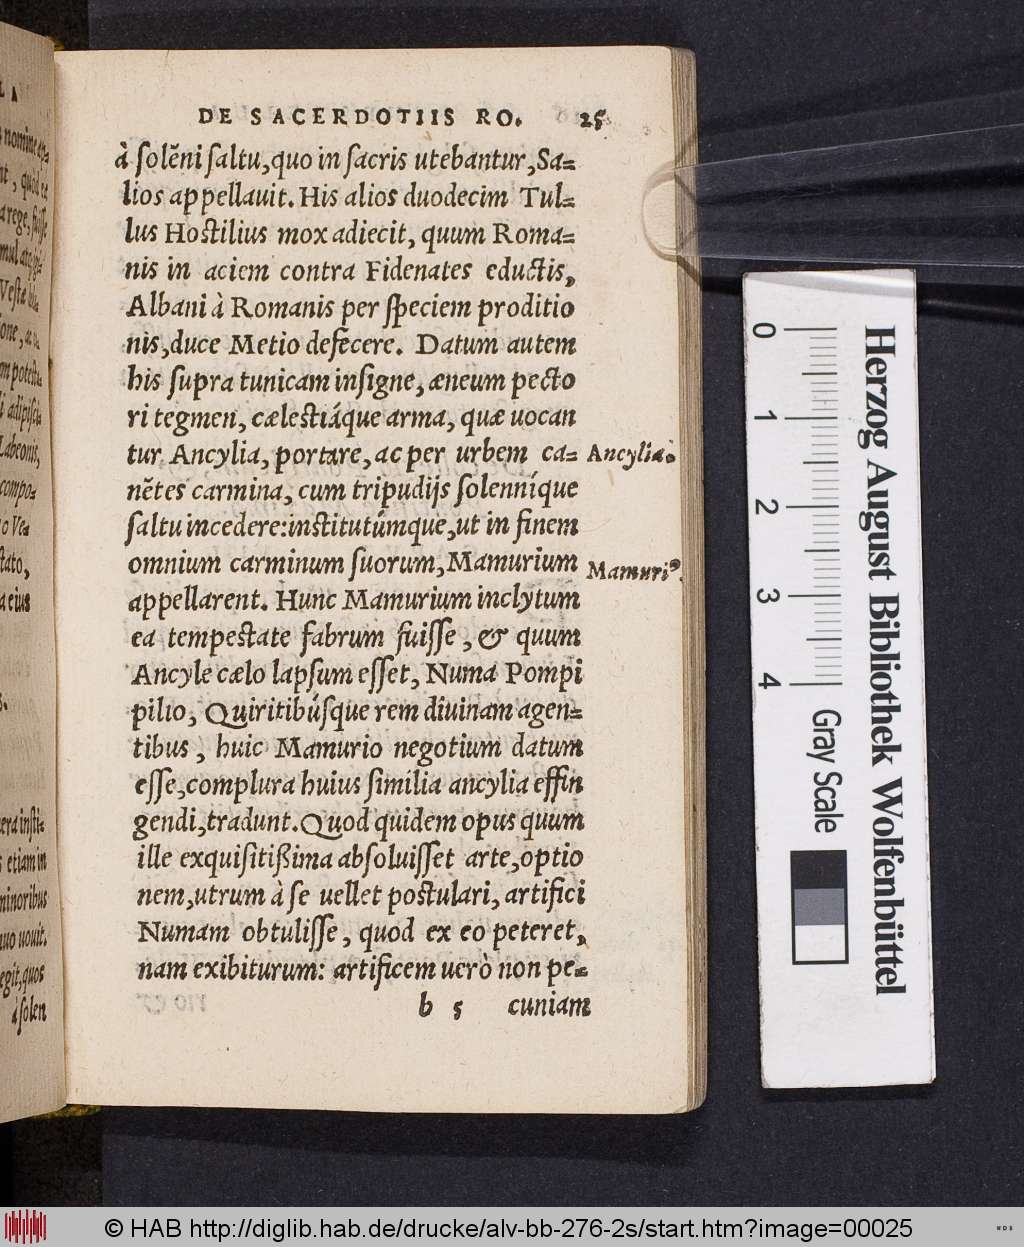 DE SACERDOTIIS RO. 25
à solẽni saltu, quo in sacris utebantur, Sa=
lios appellauit. His alios duodecim Tul=
lus Hostilius mox adiecit, quum Roma=
nis in aciem contra Fidenates eductis,
Albani à Romanis per speciem proditio
nis, duce Metio defẽcere. Datum autem
his supra tunicam insigne, æneum pecto
ri tegmen, cælestiáque arma, quæ uocan
tur Ancylia, portare, ac per urbem ca=
Ancylia.
nẽtes carmina, cum tripudijs solenníque
saltu incedere: institutúmque, ut in finem
omnium carminum suorum, Mamurium
Mamuriꝰ.
appellarent. Hunc Mamurium inclytum
ea tempestate fabrum fuisse, & quum
Ancyle cælo lapsum esset, Numa Pompi
pilio, Quiritibúsque rem diuinam agen=
tibus, huic Mamurio negotium datum
esse, complura huius similia ancylia effin
gendi, tradunt. Quod quidem opus quum
ille exquisitißima absoluisset arte, optio
nem, utrum à se uellet postulari, artifici
Numam obtulisse, quod ex eo peteret,
nam exibiturum: artificem uerò non pe=
b 5 cuniam
nomine
quod
arege, fuisse
Vestæ
potest
adipisci
Labeonis,
compo=
o Ve=
tato,
a eius
era insti=
s etiam in
minoribus
quo uouit.
egit, quos
à solen
0 1 2 3 4
Gray Scale
Herzog August Bibliothek Wolfenbüttel
© HAB http://diglib.hab.de/drucke/alv-bb-276-2s/start.htm?image=00025
WDB